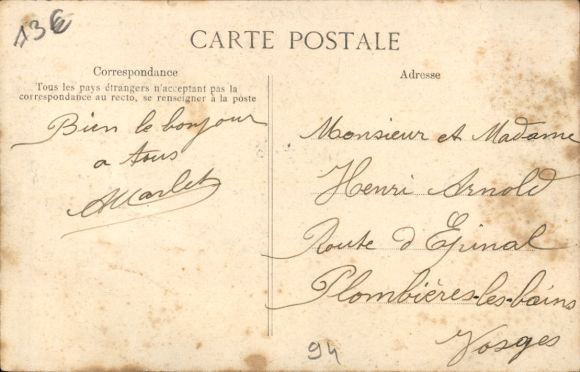 13€
CARTE POSTALE
Correspondance
Tous les pays étrangers n'acceptant pas la
correspondance au recto, se renseigner à la poste
Bien le bonjour
a tous
Adresse
Monsieur et Madame
Henri Arnold
Route d'Epinal
Plombières-les-bains
Vosges
94